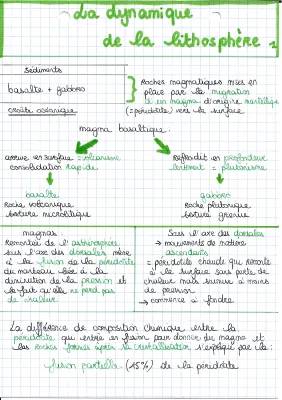 La dynamique
de la lithosphère 1
Sédiments
basalte + gabbro
croûte océanique
Roches magmatiques mises en
place par la migration
d'origine mantellique
(= péridotite) vers la surface
magma basaltique.
arrive en surface = volcanisme
consolidation rapide
Refroidit en profondeur
lentement = plutonisme
basalte
Roche volcanique
texture microlitique
gabbro
Roche plutonique
texture grenue
magmas :
Remontée de l'asthénosphère
sous l'axe des dorsales mène
à la fusion de la péridotite
du manteau liée à la
diminution de la pression et
le fait qu'elle ne perd pas
de chaleur.
Sous l'axe des dorsales
→ mouvements de matière
ascendants
= péridotite chaude qui remonte
à la surface sans perte de
chaleur mais soumise à moins
de pression
→ commence à fondre.
La différence de composition chimique entre la
péridotite qui entre en fusion pour donner du magma et
les roches formées après la cristallisation s'explique par la :
fusion partielle (15%) de la péridotite.